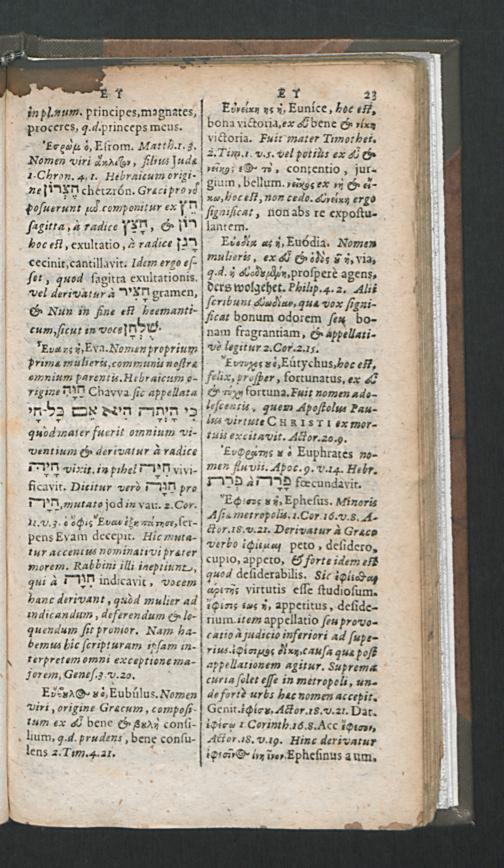 E Y
in pl.num. principes, magnates,
proceres, q.d. princeps meus.
Ἐσρώμ ὁ, Esrom. Matth. 1. 3.
Nomen viri filius Judæ
1. Chron. 4. 1. Hebraicum origi-
ne חֶצְרוֹן chetzrón. Græci pro
posuerunt componitur ex חֵץ
sagitta, à radice חָצַץ, & רוֹן
hoc est, exultatio, à radice רָנַן
cecinit, cantillavit. Idem ergo es-
set, quod sagitta exultationis.
vel derivatur à חָצִיר gramen,
& Nun in fine est heemanti-
cum, sicut in voce שֻׁלְחָן.
Εὔα ης ἡ, Eva. Nomen proprium
primæ mulieris, communis nostræ
omnium parentis. Hebraicum o-
rigine חַוָּה Chavva sic appellata
כִּי הָיְתָה הִיא אֵם כָּל־חָי
quòd mater fuerit omnium vi-
ventium & derivatur à radice
חָיָה vixit, in pihel חִיָּה vivi-
ficavit. Dicitur verò חַוָּה pro
חַיָּה, mutato jod in vau. 2. Cor.
11. v. 3. ὁ ὄφις Εὔαν ἐξηπάτησε, ser-
pens Evam decepit. Hic muta-
tur accentus nominativi præter
morem. Rabbini illi ineptiunt,
qui à חִוָּה indicavit, vocem
hanc derivant, quòd mulier ad
indicandum, deferendum & lo-
quendum sit pronior. Nam ha-
bemus hic scripturam ipsam in-
terpretem omni exceptione ma-
jorem, Genes. 3. v. 20.
Εὔβουλος ου ὁ, Eubúlus. Nomen
viri, origine Græcum, composi-
tum ex εὖ bene & βουλή consi-
lium, q.d. prudens, benè consu-
lens 2. Tim. 4. 21.
E Y 23
Εὐνείκη ης ἡ, Eunice, hoc est,
bona victoria, ex εὖ bene & νίκη
victoria. Fuit mater Timothei.
2. Tim. 1. v. 5. vel potiùs ex εὖ &
νεῖκος εος τό, contentio, jur-
gium, bellum. νεῖκος ex νη & εἴ-
κω, hoc est, non cedo. εὐνείκη ergo
significat, non abs re expostu-
lantem.
Εὐοδία ας ἡ, Euódia. Nomen
mulieris, ex εὖ & ὁδός οῦ ἡ, via,
q.d. ἡ prosperè agens,
ders wolgehet. Philip. 4. 2. Alii
scribunt εὐωδία, qua vox signi-
ficat bonum odorem seu bo-
nam fragrantiam, & appellati-
vè legitur 2. Cor. 2. 15.
Εὔτυχος ου ὁ, Eútychus, hoc est,
felix, prosper, fortunatus, ex εὖ
& τύχη fortuna. Fuit nomen ado-
lescentis, quem Apostolus Pau-
lus virtute CHRISTI ex mor-
tuis excitavit. Act. 20. 9.
Εὐφράτης ου ὁ Euphrates no-
men fluvii. Apoc. 9. v. 14. Hebr.
פְּרָת à פָּרָה fœcundavit.
Ἔφεσος ου ἡ, Ephesus. Minoris
Asiæ metropolis. 1. Cor. 16. v. 8. A-
ctor. 18. v. 21. Derivatur à Græco
verbo ἐφίεμαι peto, desidero,
cupio, appeto, & forte idem est
quod desiderabilis. Sic ἐφίεσθαι
ἀρετῆς virtutis esse studiosum.
ἔφεσις εως ἡ, appetitus, deside-
rium. item appellatio seu provo-
catio à judicio inferiori ad supe-
rius. ἐφέσιμος δίκη, causa quæ post
appellationem agitur. Suprema
curia solet esse in metropoli, un-
de fortè urbs hæc nomen accepit.
Genit. ἐφέσου, Actor. 18. v. 21. Dat.
ἐφέσῳ 1 Corinth. 16. 8. Acc ἔφεσον,
Actor. 18. v. 19. Hinc derivatur
Ephesinus a um,